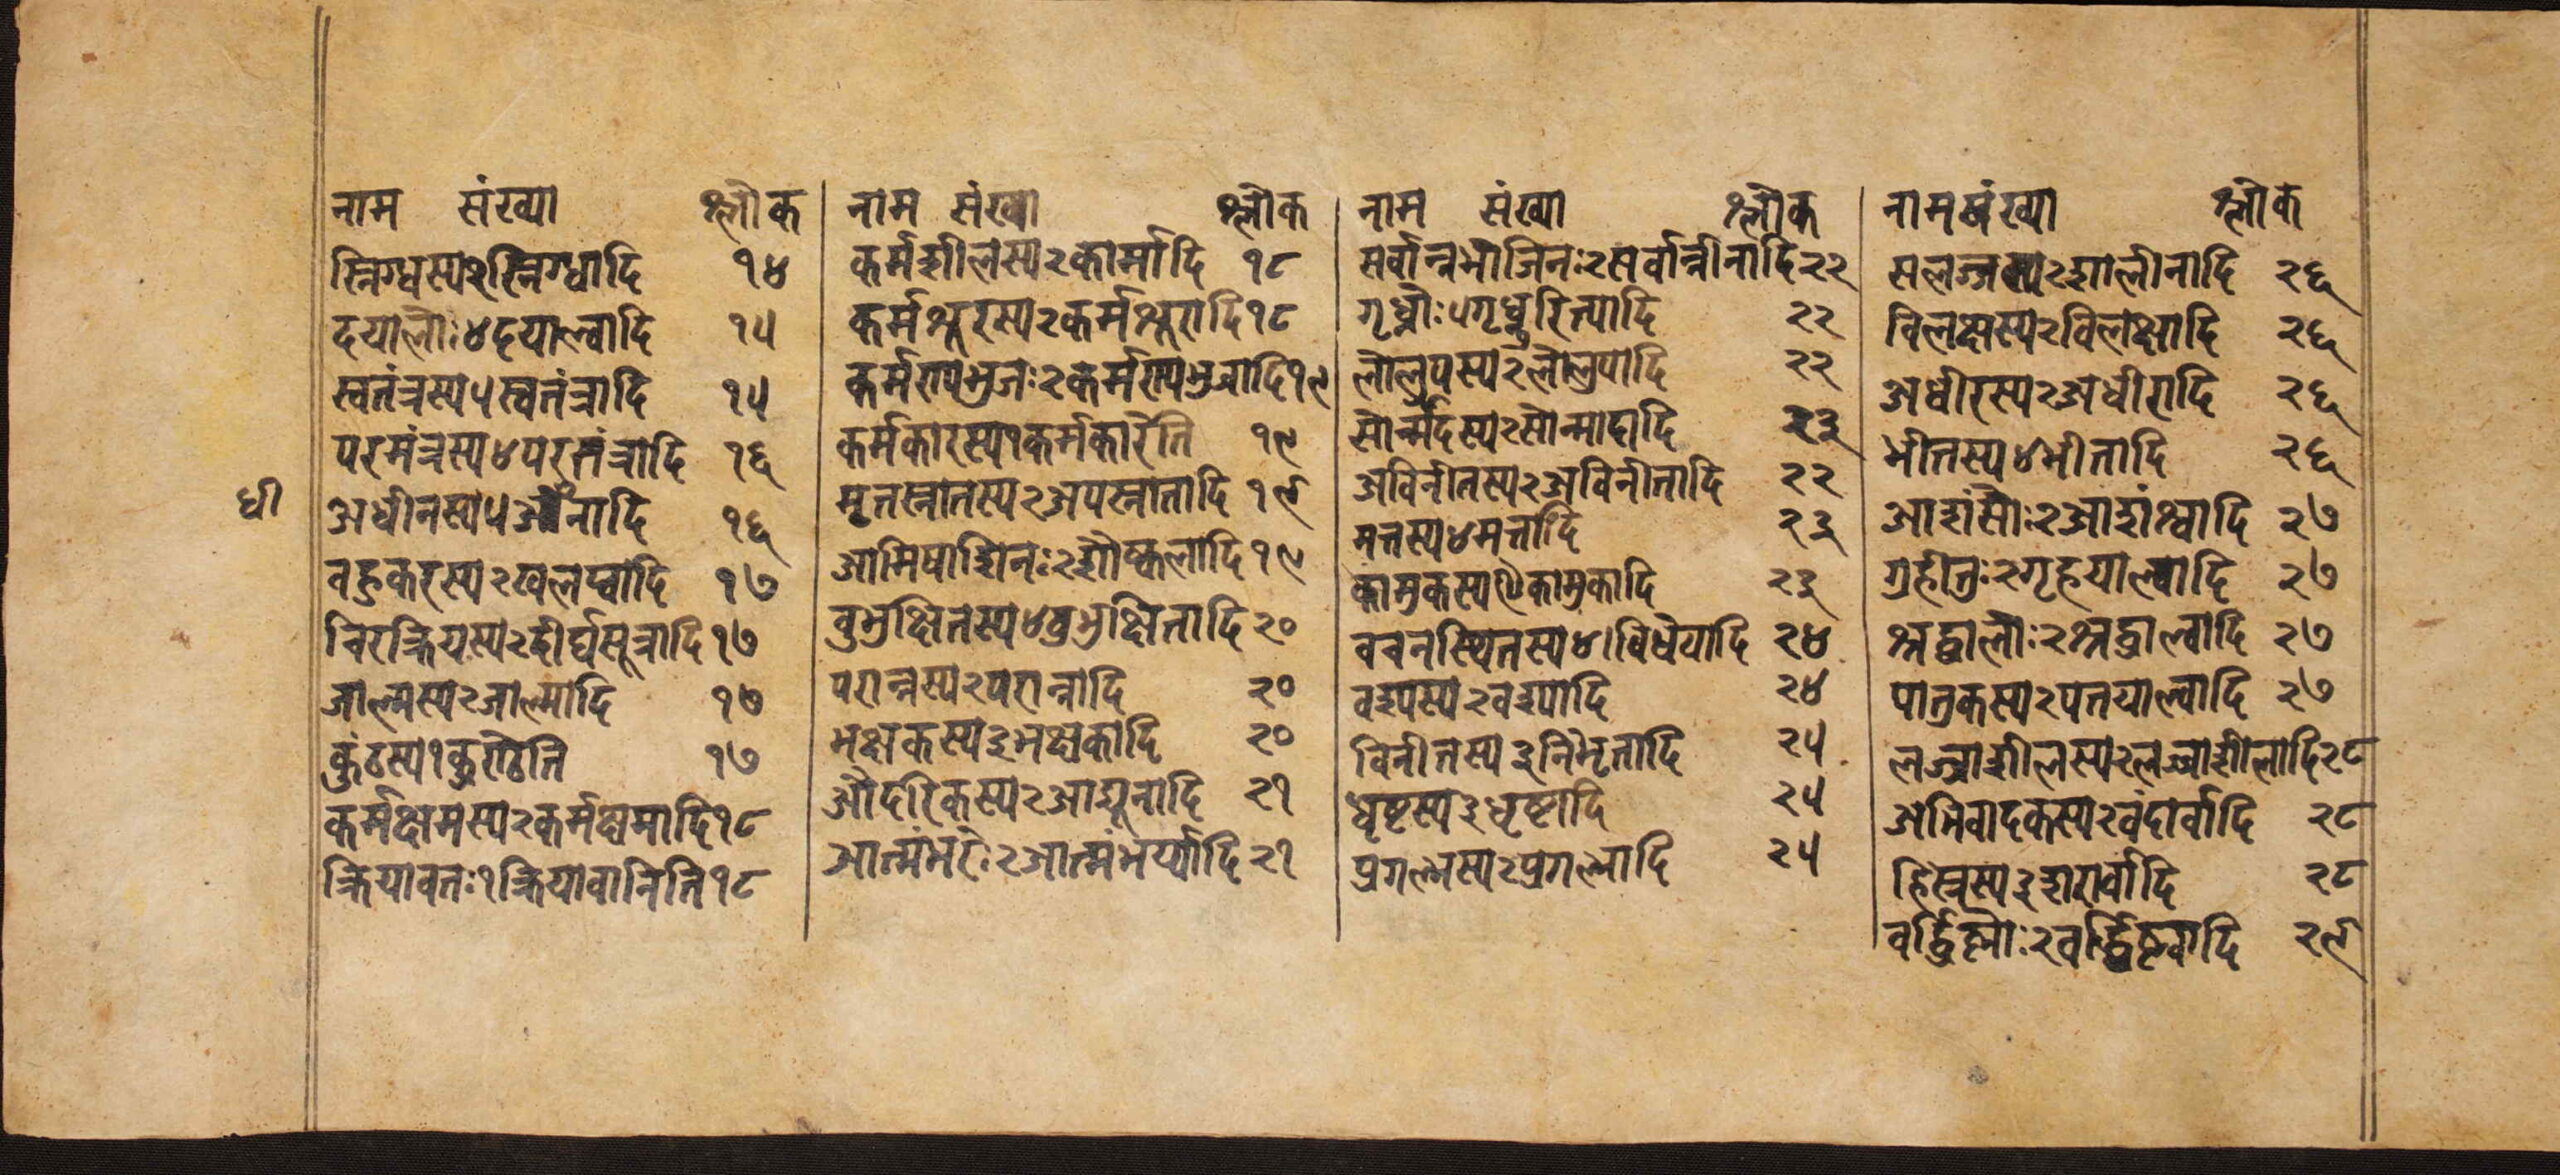 नाम संख्या श्लोक
स्निग्धस्य२स्निग्धादि १४
दयालोः४दयाल्वादि १५
स्वतंत्रस्य५स्वतंत्रादि १५
परमंत्रस्य४परतंत्रादि १६
धी
अधीनस्य५अधीनादि १६
वहुकरस्य२खलप्वादि १७
चिरक्रियस्य२दीर्घसूत्रादि१७
जाल्मस्य२जाल्मादि १७
कुंठस्य१कुण्ठेति १७
कर्मक्षमस्य२कर्मक्षमादि१८
क्रियावतः१क्रियावानिति१८
नाम संख्या श्लोक
कर्मशीलस्य२कार्मादि १८
कर्मश्शूरस्य२कर्मश्शूरादि१८
कर्मण्यभुजः२कर्मण्यभुजादि१९
कर्मकारस्य१कर्मकारेति १९
मृतस्नातस्य२अपस्नातादि १९
आमिषाशिनः२शौष्कलादि१९
वुभुक्षितस्य४वुभुक्षितादि२०
परान्नस्य२परान्नादि २०
भक्षकस्य३भक्षकादि २०
औदरिकस्य२आद्यूनादि २१
आत्मंभरेः२आत्मंभर्य्यादि२१
नाम संख्या श्लोक
सर्वान्नभोजिनः२सर्वान्नीनादि२२
गृध्नोः५गृध्नुरित्यादि २२
लोलुपस्य२लोलुपादि २२
सोर्न्मदस्य२सोन्मादादि २३
अविनीतस्य२अविनीतादि २२
मत्तस्य४मत्तादि २३
कामुकस्य९कामुकादि २३
वचनस्थितस्य४।विधेयादि २४
वश्यस्य२वश्यादि २४
विनीतस्य३निभृतादि २५
धृष्टस्य३धृष्टादि २५
प्रगल्भस्य२प्रगल्भादि २५
नामसंख्या श्लोक
सलज्जस्य२शालीनादि २६
विलक्षस्य२विलक्षादि २६
अधीरस्य२अधीरादि २६
भीतस्य४भीतादि २६
आशंसोः२आशंश्वादि २७
ग्रहीतुः२गृहयाल्वादि २७
श्रद्धालोः२श्रद्धाल्वादि २७
पातुकस्य२पतयाल्वादि २७
लज्जाशीलस्य२लज्जाशीलादि२८
अभिवादकस्य२वंदार्वादि २८
हिंस्रस्य३शरार्वादि २८
वर्द्धिष्णोः२वर्द्धिष्ण्वादि २९